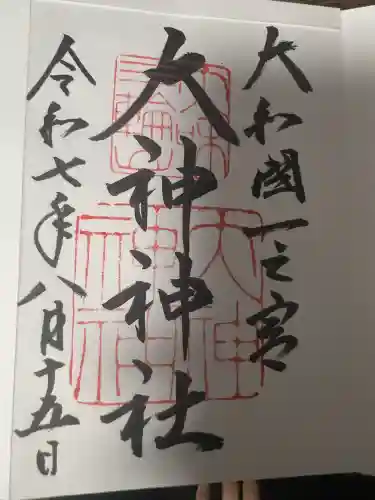 大和國一之宮
大神神社
令和七年八月十五日